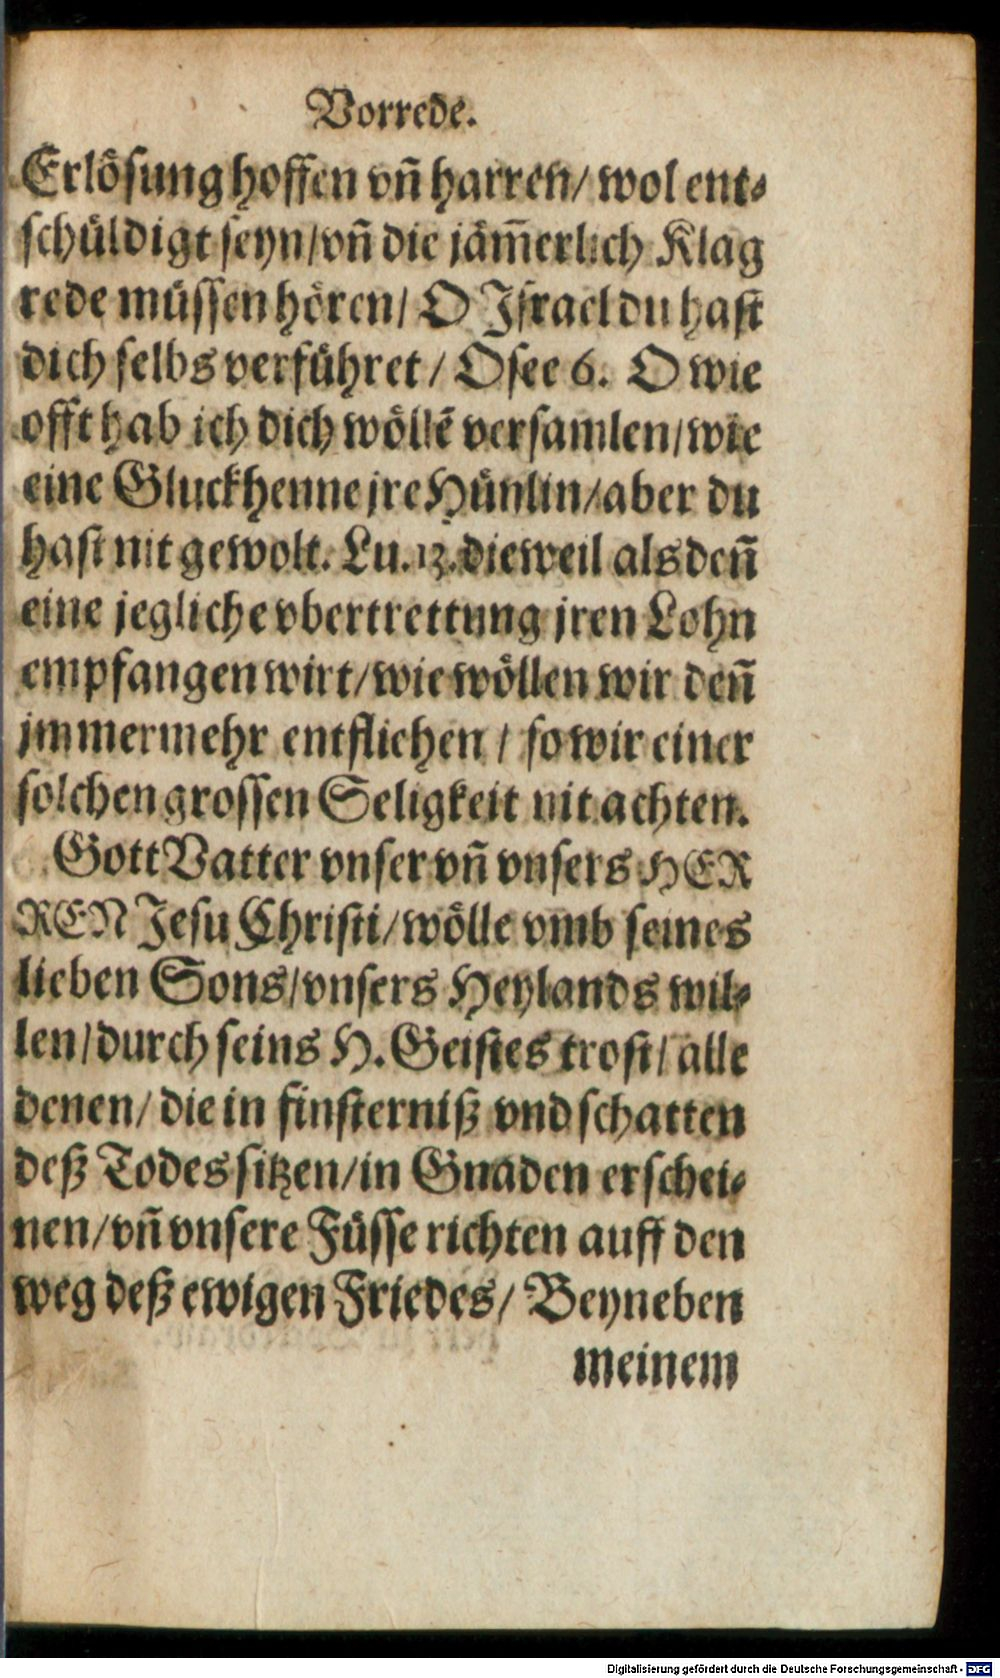 Vorrede.
Erlösung hoffen vn̄ harren/ wol ent-
schüldigt seyn/ vn̄ die jäm̄erlich Klag
rede müssen hören/ O Israel du hast
dich selbs verführet / Osee 6. O wie
offt hab ich dich wöllē versamlen/ wie
eine Gluckhenne jre Hünlin/ aber du
hast nit gewolt. Lu. 13. dieweil als den̄
eine jegliche vbertrettung jren Lohn
empfangen wirt/ wie wöllen wir den̄
jmmermehr entfliehen / so wir einer
solchen grossen Seligkeit nit achten.
Gott Vatter vnser vn̄ vnsers HER
REN Jesu Christi/ wölle vmb seines
lieben Sons/ vnsers Heylands wil-
len/ durch seins H. Geistes trost/ alle
denen/ die in finsterniß vnd schatten
deß Todes sitzen/ in Gnaden erschei-
nen/ vn̄ vnsere Füsse richten auff den
weg deß ewigen Friedes/ Beyneben
meinem
Digitalisierung gefördert durch die Deutsche Forschungsgemeinschaft - DFG